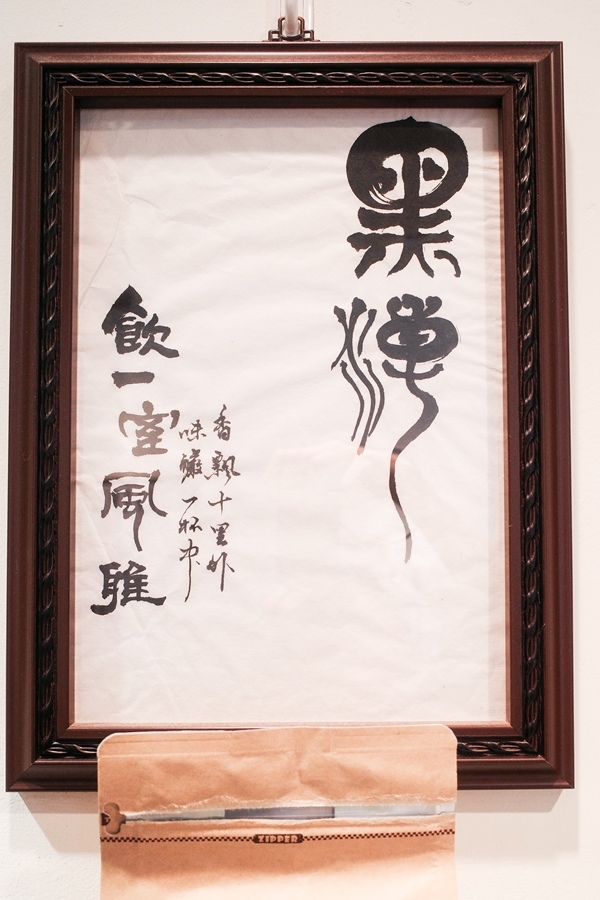 黑禪
香飄十里外
味釅一杯中
飲一室風雅
ZIPPER